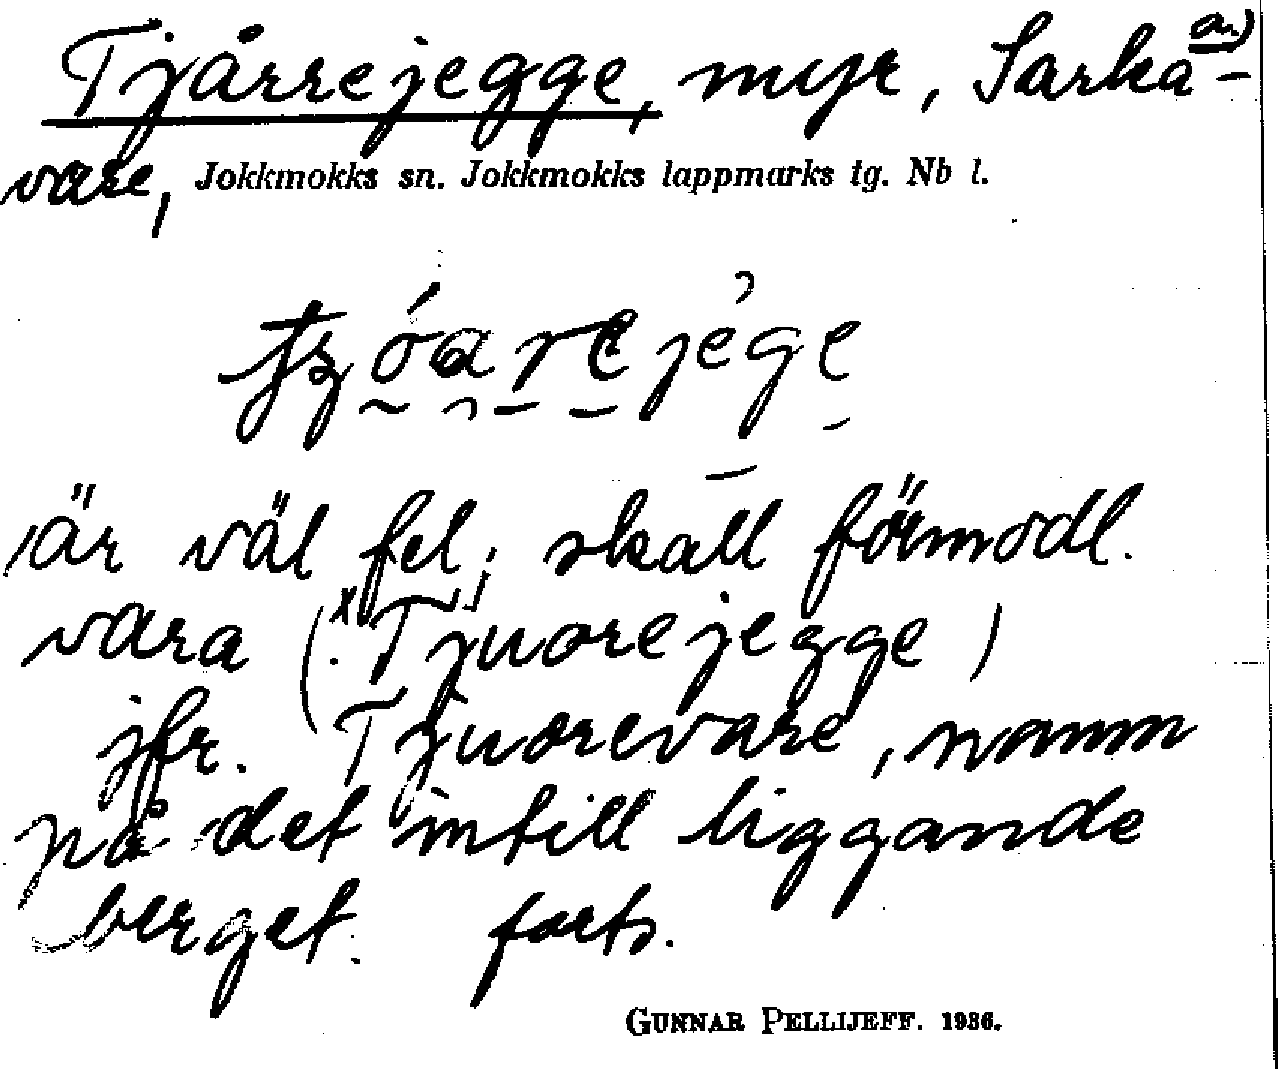 Tjårrejegge, myr, Sarka-
vare, Jokkmokks sn. Jokkmokks lappmarks tg. Nb l.
är väl fel; skall förmodl.
vara (Tjuorejegge)
jfr. Tjuorevare, namn
på det intill liggande
berget. forts.
GUNNAR PELLIJEFF. 1936.